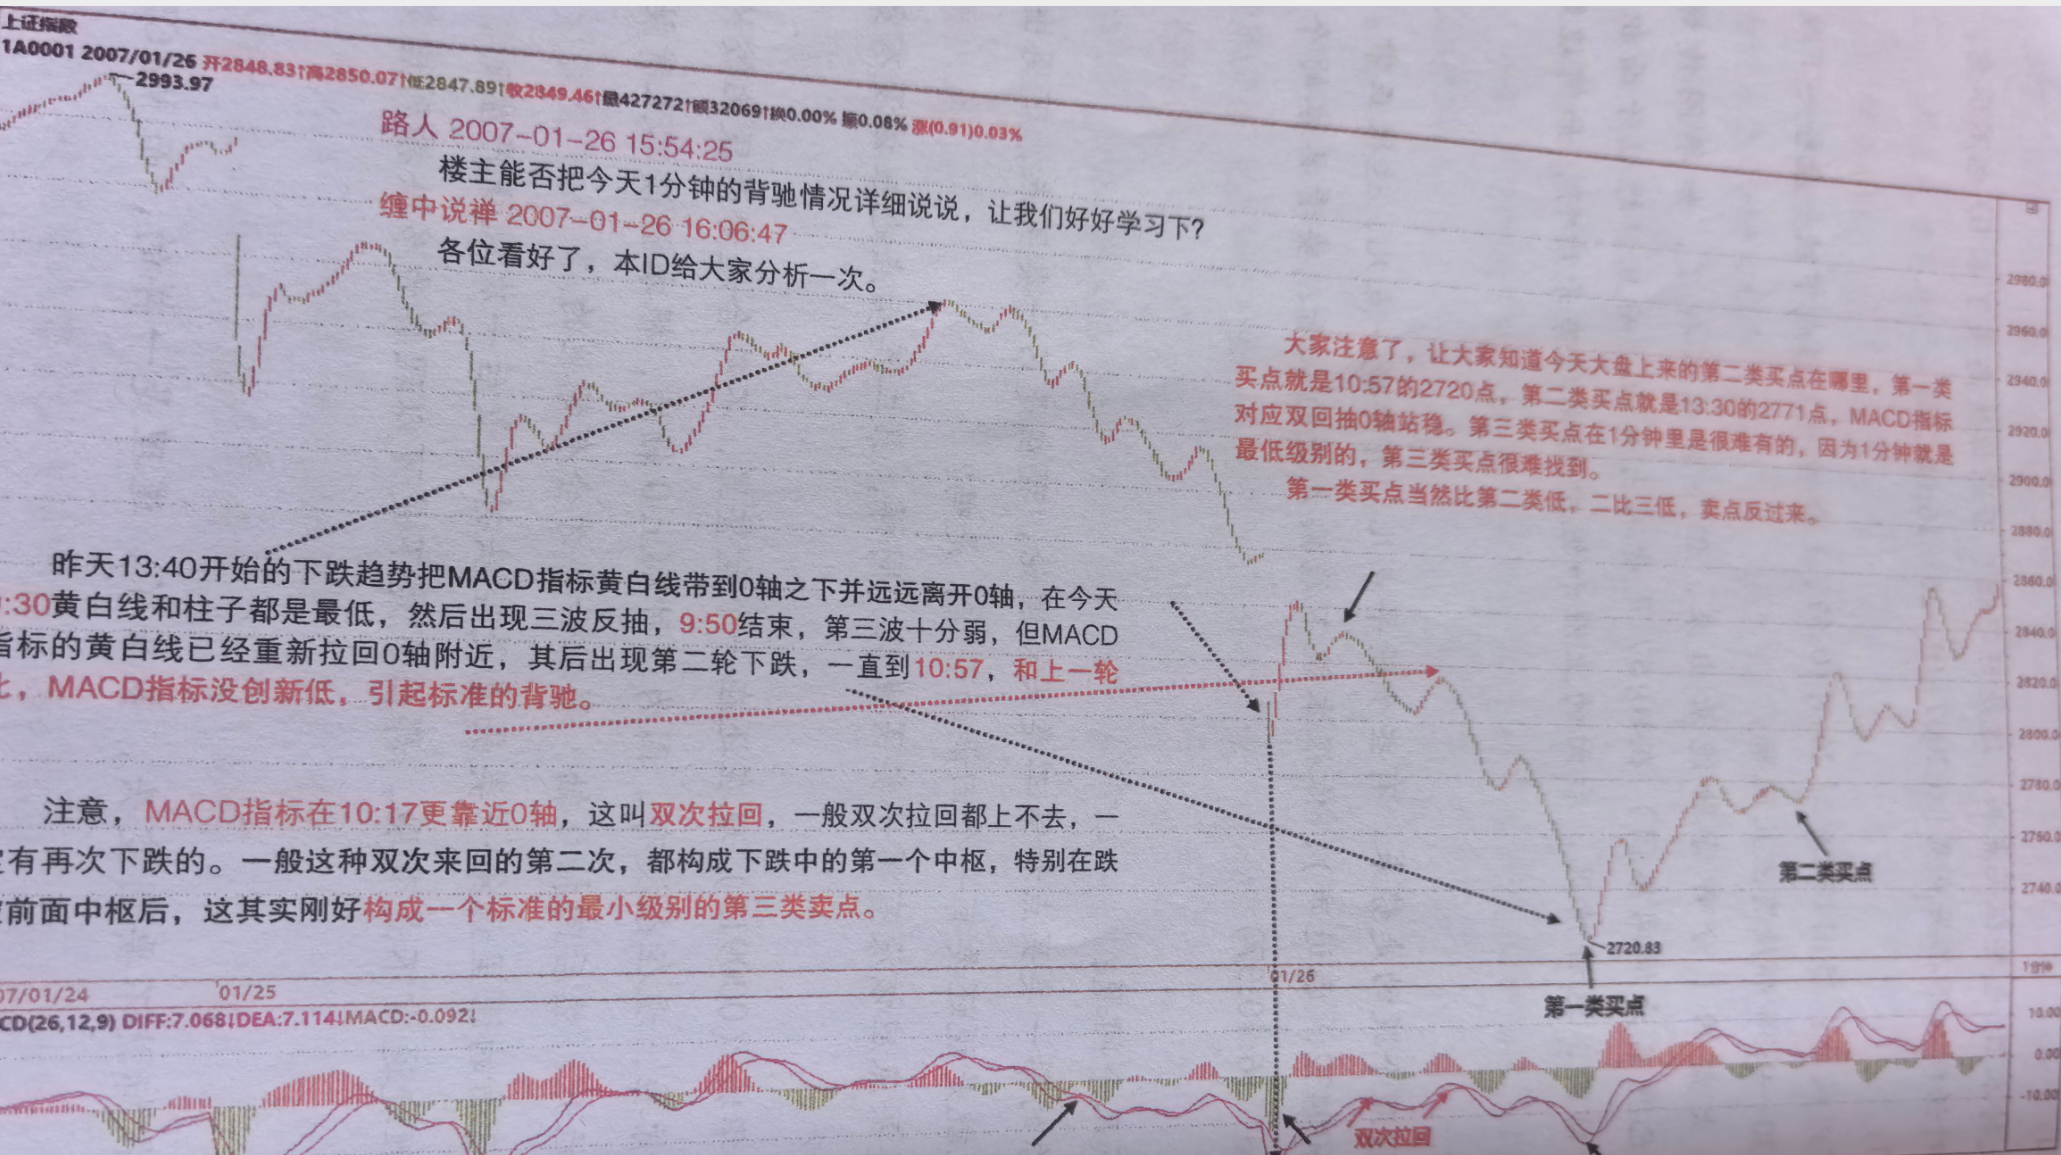 上证指数
1A0001 2007/01/26 开2848.83↑高2850.07↑低2847.89↑收2849.46↑量427272↑额32069↑换0.00% 振0.08% 涨(0.91)0.03%
2993.97
路人 2007-01-26 15:54:25
楼主能否把今天1分钟的背驰情况详细说说，让我们好好学习下?
缠中说禅 2007-01-26 16:06:47
各位看好了，本ID给大家分析一次。
大家注意了，让大家知道今天大盘上来的第二类买点在哪里，第一类
买点就是10:57的2720点，第二类买点就是13:30的2771点，MACD指标
对应双回抽0轴站稳。第三类买点在1分钟里是很难有的，因为1分钟就是
最低级别的，第三类买点很难找到。
第一类买点当然比第二类低，二比三低，卖点反过来。
昨天13:40开始的下跌趋势把MACD指标黄白线带到0轴之下并远远离开0轴，在今天
:30黄白线和柱子都是最低，然后出现三波反抽，9:50结束，第三波十分弱，但MACD
指标的黄白线已经重新拉回0轴附近，其后出现第二轮下跌，一直到10:57，和上一轮
比，MACD指标没创新低，引起标准的背驰。
注意，MACD指标在10:17更靠近0轴，这叫双次拉回，一般双次拉回都上不去，一
定有再次下跌的。一般这种双次来回的第二次，都构成下跌中的第一个中枢，特别在跌
破前面中枢后，这其实刚好构成一个标准的最小级别的第三类卖点。
2980.0
2960.0
2940.0
2920.0
2900.0
2880.0
2860.0
2840.0
2820.0
2800.0
2780.0
2760.0
2740.0
第二类买点
2720.83
第一类买点
07/01/24
01/25
01/26
CD(26,12,9) DIFF:7.068↓DEA:7.114↓MACD:-0.092↓
10.00
0.00
-10.00
双次拉回